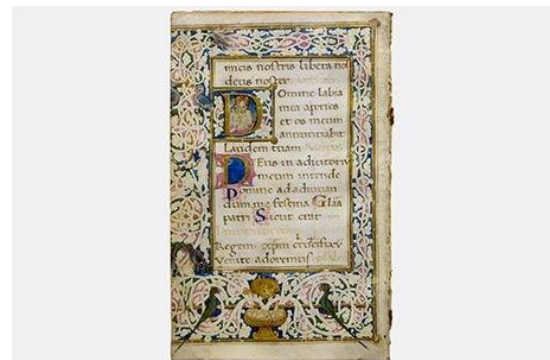 micis nostris libera nos
deus noster
Domine labia
mea aperies
et os meum
annuntiabit
Laudem tuam
DEus in adiutoriu
meum intende
Domine ad adiuuan
dum me festina Glia
patri Sicut erat
Regem crucifixu
Venite adoremus